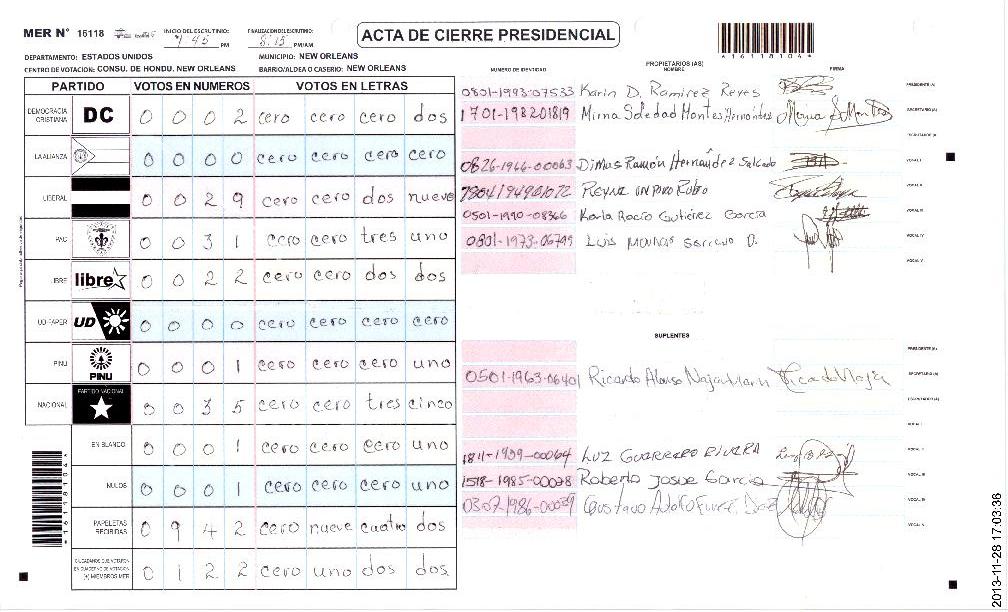 MER N° 16118 INICIO DEL ESCRUTINIO: 7:45 PM FINALIZACION DEL ESCRUTINIO: 8:15 PM/AM ACTA DE CIERRE PRESIDENCIAL *16118104*
DEPARTAMENTO: ESTADOS UNIDOS MUNICIPIO: NEW ORLEANS
CENTRO DE VOTACION: CONSU. DE HONDU, NEW ORLEANS BARRIO/ALDEA O CASERIO: NEW ORLEANS
PARTIDO VOTOS EN NUMEROS VOTOS EN LETRAS
DEMOCRACIA CRISTIANA DC 0 0 0 2 cero cero cero dos
LA ALIANZA 0 0 0 0 cero cero cero cero
LIBERAL 0 0 2 9 cero cero dos nueve
PAC 0 0 3 1 cero cero tres uno
LIBRE libre 0 0 2 2 cero cero dos dos
UD-FAPER UD 0 0 0 0 cero cero cero cero
PINU PINU 0 0 0 1 cero cero cero uno
NACIONAL PARTIDO NACIONAL 0 0 3 5 cero cero tres cinco
EN BLANCO 0 0 0 1 cero cero cero uno
NULOS 0 0 0 1 cero cero cero uno
PAPELETAS RECIBIDAS 0 9 4 2 cero nueve cuatro dos
CIUDADANOS QUE VOTARON EN CUADERNO DE VOTACION (+) MIEMBROS MER 0 1 2 2 cero uno dos dos
*16118104*
NUMERO DE IDENTIDAD PROPIETARIOS (AS) NOMBRE FIRMA
0801-1993-07533 Karin D. Ramirez Reyes PRESIDENTE (A)
1701-198201819 Mirna Soledad Montes Hernández SECRETARIO (A)
ESCRUTADOR (A)
0826-1966-00063 Dimas Ramón Hernández Salgado VOCAL I
VOCAL II
0501-1990-08366 Karla Rocío Gutiérrez García VOCAL III
0801-1973-06799 Luis VOCAL IV
VOCAL V
SUPLENTES
PRESIDENTE (A)
0501-1963-06401 Ricardo Alonso SECRETARIO (A)
ESCRUTADOR (A)
VOCAL I
1811-1959-00064 LUZ GUERRERO RIVERA VOCAL II
1518-1985-00028 Roberto Josue Garcia VOCAL III
0307-1986-00039 Gustavo Adolfo VOCAL IV
VOCAL V
2013-11-28 17:03:36